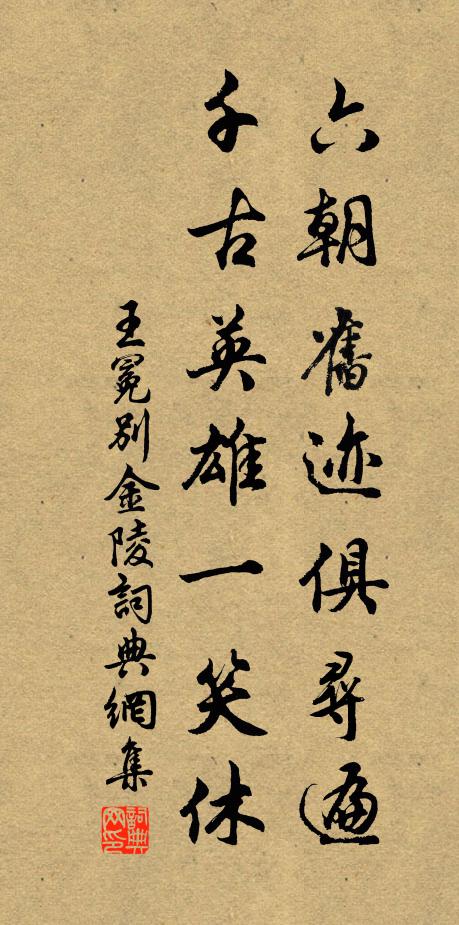 六朝舊迹俱尋遍
千古英雄一笑休
王冕別金陵詞典網集
詞典网印